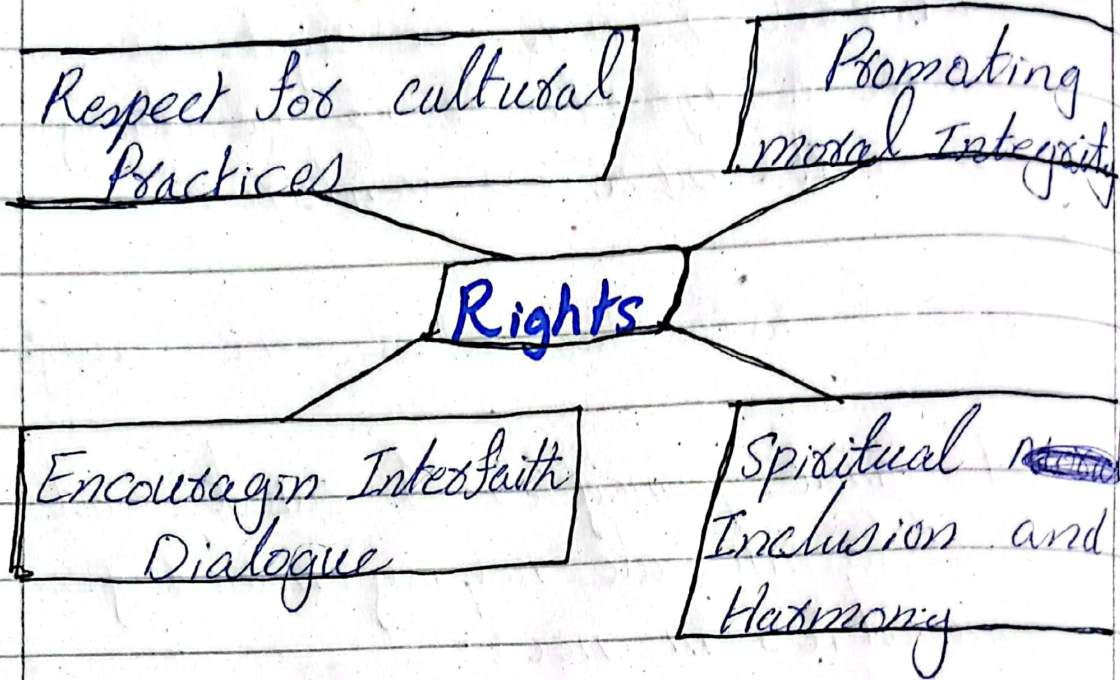 Respect for cultural
Practices
Promoting
moral Integrity
Rights
Encouragin Interfaith
Dialogue
Spiritual
Inclusion and
Harmony